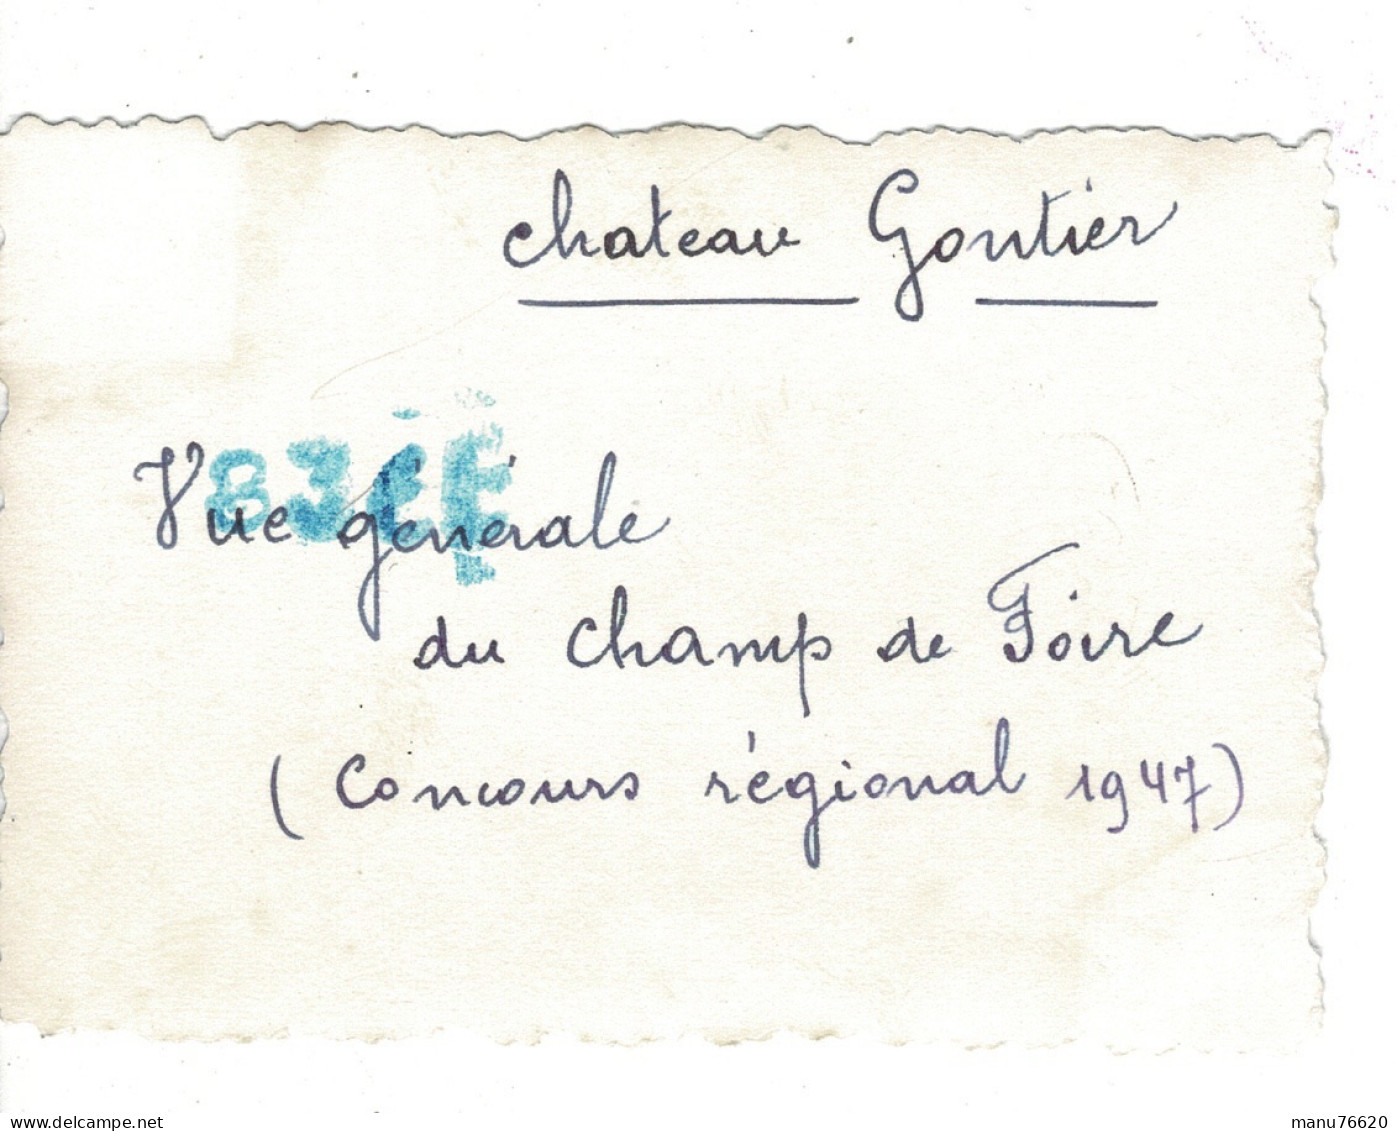 chateau Gontier
Vue générale
du champ de Foire
(Concours régional 1947)
www.delcampe.net
manu76620